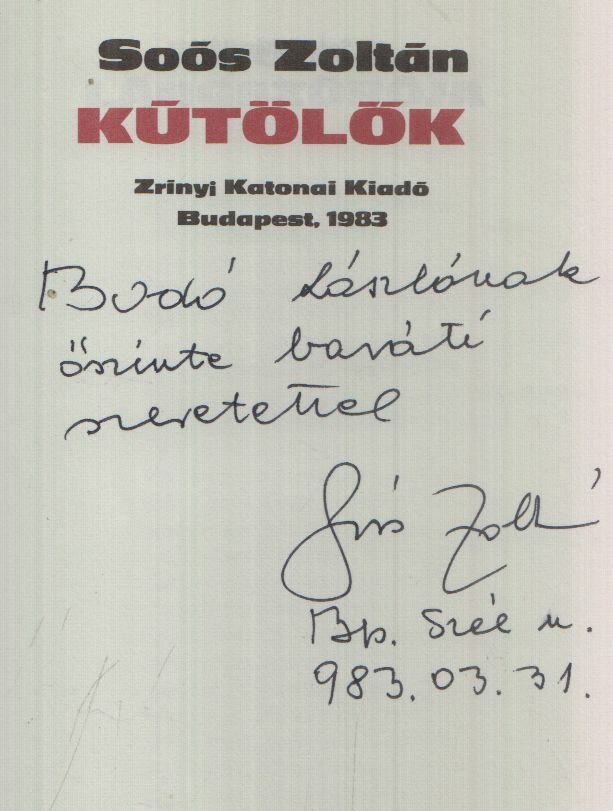 Soós Zoltán
KÚTÖLŐK
Zrínyi Katonai Kiadó
Budapest, 1983
Bodó Lászlónak
őszinte baráti
szeretettel
Soós Zoltán
Bp. Szél u.
983. 03. 31.